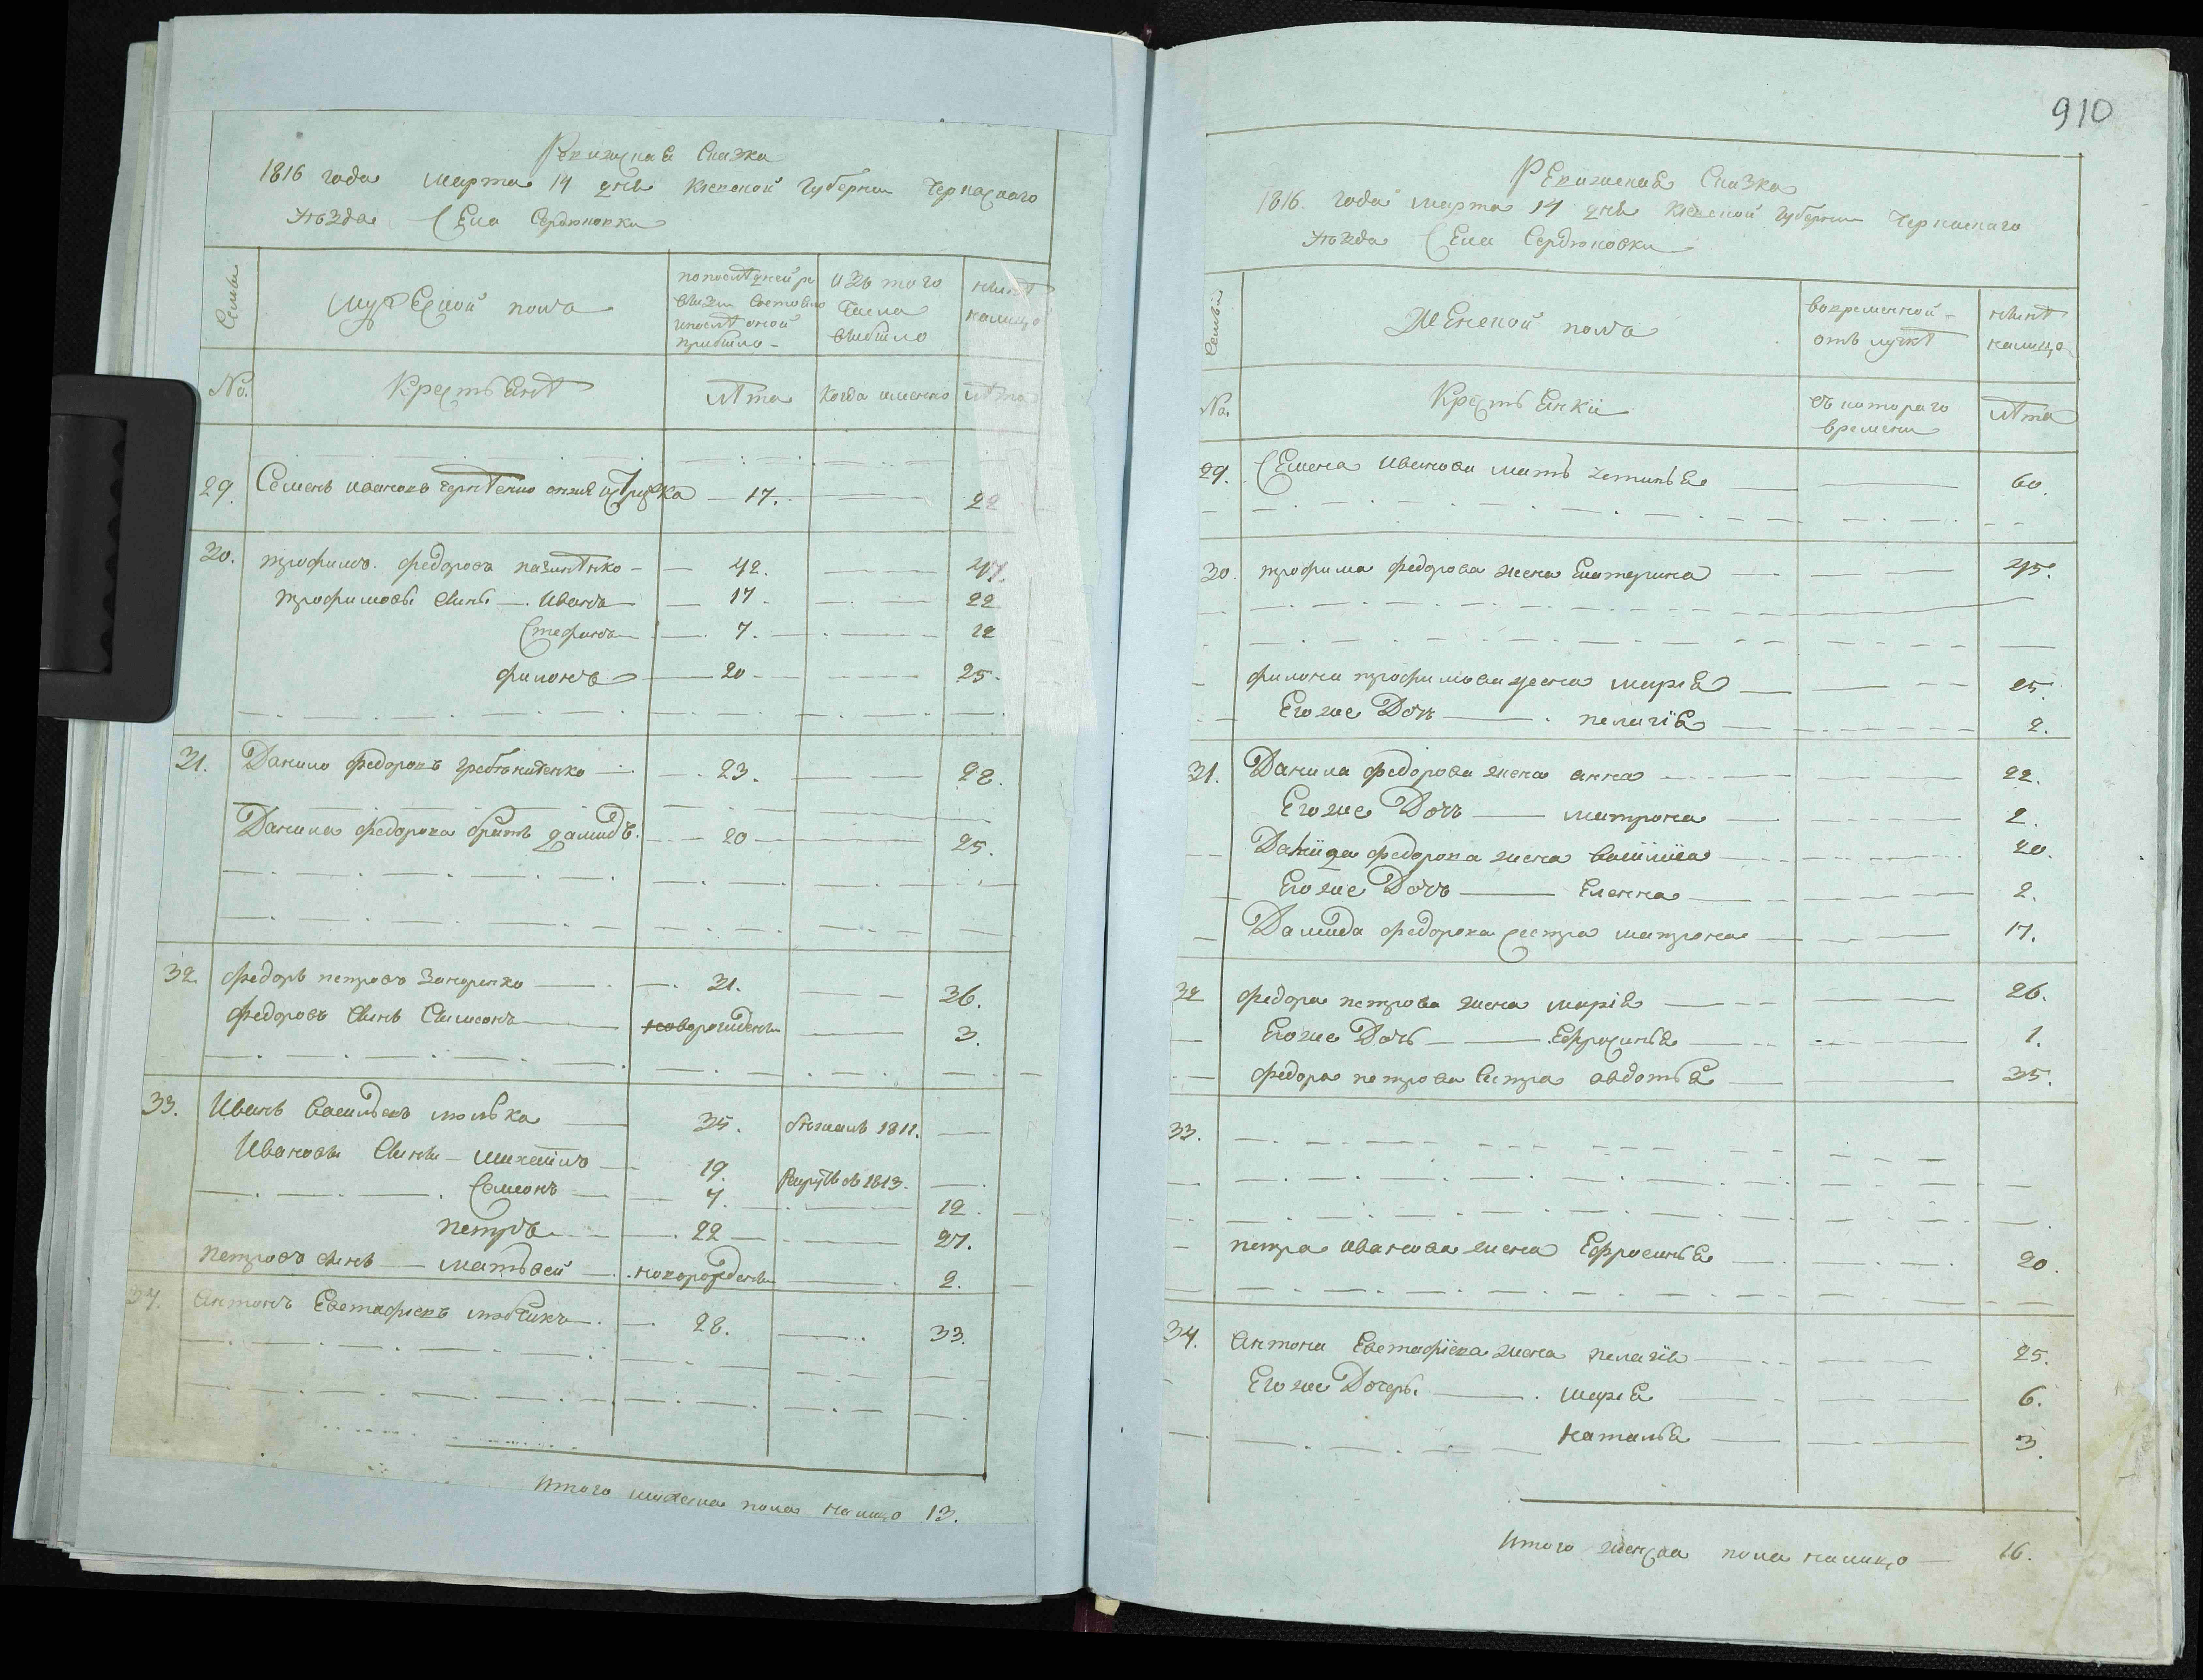 Ревижская Сказка
1816 года марта 14 дня Киевской Губернии Черкаскаго
уѣзда Села Сердюковки
Семьи
Мужеской пола
попослѣдней ре
визии состояло
ипослѣ оной
прибыло
изъ того
числа
выбыло
нынѣ
налицо
No.
Крестьянѣ
лѣта
когда именно
лѣта
29. Семенъ Ивановъ 17. 22
30. трофимъ федоровъ 42. 47.
трофимовы сыны Иванъ 17. 22
Стефанъ 7. 12
филонъ 20 25.
31. Данило федоровъ гребѣниченко 23. 28.
Данила федорова братъ Дамидъ. 20 25.
32. федоръ петровъ 31. 36.
федоровъ сынъ Симеонъ новорожденъ 3.
33. Иванъ Васильевъ люлька 35. бѣжалъ 1811.
Ивановы сыны Михайло 19. 1813.
Самсонъ 7. 12.
петръ 22 27.
петровъ сынъ матвей новорожденъ 2.
34. Антонъ Евстафіевъ 28. 33.
Итого мужеска пола налицо 13.
910
Ревижская Сказка
1816. года марта 14 дня Киевской Губернии Черкаскаго
уѣзда Села Сердюковки
Семьи
Женской пола
вовременной
отълучкѣ
нынѣ
налицо
No.
Крестьянки
съ котораго
времени
лѣта
29. Семена Иванова мать 60.
30. трофима федорова жена Екатерина 45.
филона трофимова жена марія 25.
Его же Дочь пелагія 2.
31. Данила федорова жена анна 22.
Его же Дочь матрона 2.
федорова жена 20.
Его же Дочь Еленна 2.
Дамида федорова сестра матрона 17.
32 федора петрова жена марія 26.
Его же Дочь Ефросинья 1.
федора петрова сестра авдотья 35.
33.
петра Иванова жена Ефросинья 20.
34. Антона Евстафіева жена пелагія 25.
Его же Дочеры марія 6.
Наталья 3.
Итого женска пола налицо 16.